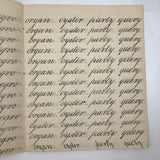 organ oyster party query
organ oyster party query
organ oyster party query
organ oyster party query
organ oyster party query
organ oyster party query
organ oyster party query
organ oyster party query
organ oyster party query
organ oyster party query
organ oyster party query